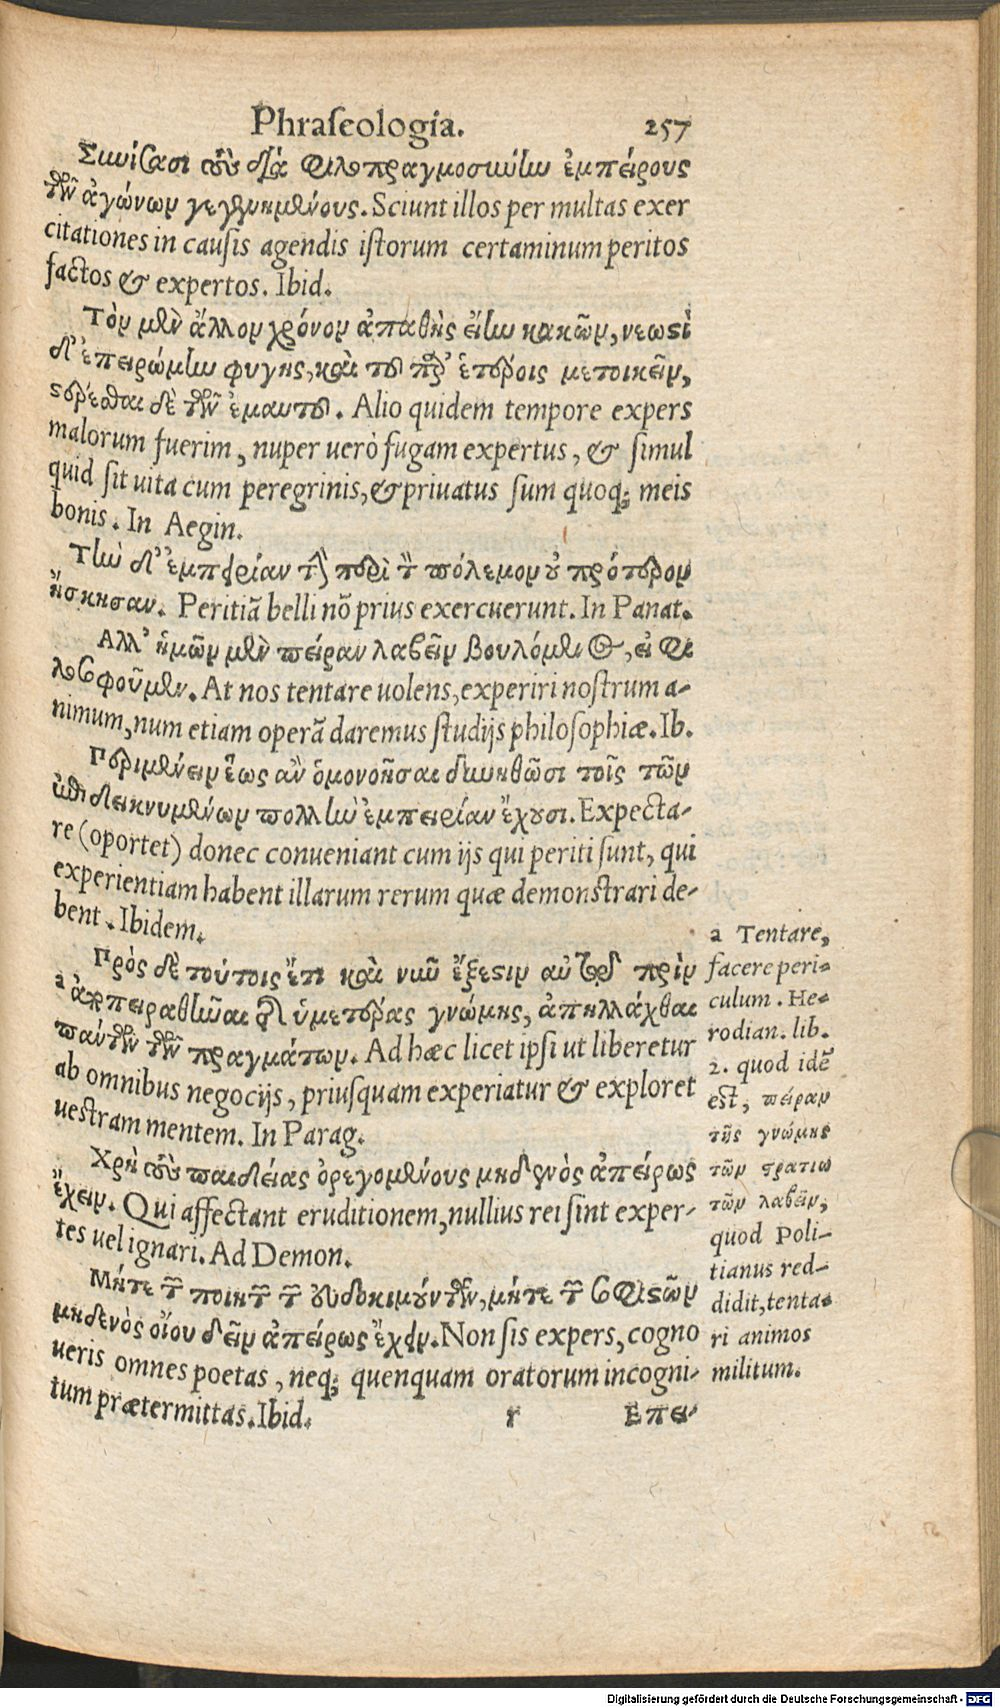 Phraſeologia. 257
Συνίσασι τοὺς διὰ φιλοπραγμοσύνην ἐμπείρους
τῶν ἀγώνων γεγενημένους. Sciunt illos per multas exer
citationes in cauſis agendis iſtorum certaminum peritos
factos & expertos. Ibid.
Τὸν μὲν ἄλλον χρόνον ἀπαθὴς εἴην κακῶν, νεωστὶ
δ' ἐπειρώμην φυγῆς, καὶ τοῦ παρ' ἑτέροις μετοικεῖν,
στέρεσθαι δὲ τῶν ἐμαυτοῦ. Alio quidem tempore expers
malorum fuerim, nuper uerò fugam expertus, & ſimul
quid ſit uita cum peregrinis, & priuatus ſum quoq; meis
bonis. In Aegin.
Τὴν δ' ἐμπειρίαν τὴν περὶ τὸν πόλεμον οὐ πρότερον
ἤσκησαν. Peritiā belli nō prius exercuerunt. In Panat.
Αλλ' ἡμῶν μὲν πεῖραν λαβεῖν βουλόμενος, εἰ φι
λοσοφοῦμεν. At nos tentare uolens, experiri noſtrum a-
nimum, num etiam operā daremus ſtudijs philoſophiæ. Ib.
Περιμένειν ἕως ἂν ὁμονοῆσαι δυνηθῶσι τοῖς τῶν
ἐπιδεικνυμένων πολλὴν ἐμπειρίαν ἔχουσι. Expecta-
re (oportet) donec conueniant cum ijs qui periti ſunt, qui
experientiam habent illarum rerum quæ demonſtrari de-
bent. Ibidem.
Πρὸς δὲ τούτοις ἔτι καὶ νῦν ἔξεστιν αὐτῷ πρὶν
a ἀποπειραθῆναι τῆς ὑμετέρας γνώμης, ἀπηλλάχθαι
πάντων τῶν πραγμάτων. Ad hæc licet ipſi ut liberetur
ab omnibus negocijs, priuſquam experiatur & exploret
ueſtram mentem. In Parag.
Χρὴ τοὺς παιδείας ὀρεγομένους μηδενὸς ἀπείρως
ἔχειν. Qui affectant eruditionem, nullius rei ſint exper-
tes uel ignari. Ad Demon.
Μήτε τῶν ποιητῶν τῶν εὐδοκιμούντων, μήτε τῶν σοφιστῶν
μηδενὸς οἵου δεῖν ἀπείρως ἔχειν. Non ſis expers, cogno
ueris omnes poetas, neq; quenquam oratorum incogni-
tum prætermittas. Ibid.
r Επει-
a Tentare,
facere peri-
culum. He-
rodian. lib.
2. quod idē
eſt, πεῖραν
τῆς γνώμης
τῶν στρατιω
τῶν λαβεῖν;
quod Poli-
tianus red-
didit, tenta-
ri animos
militum.
Digitalisierung gefördert durch die Deutsche Forschungsgemeinschaft - DFG